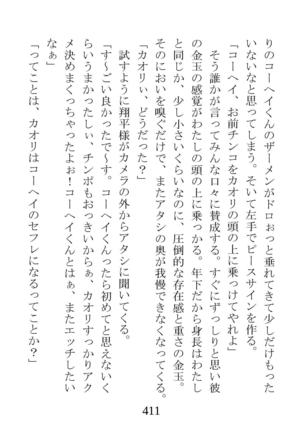 りのコーヘイくんのザーメンがドロぉっと垂れてきて少しだけもった
いないなと思ってしまう。そいて左手でピースサインを作る。
「コーヘイ、お前チンコをカオリの頭の上に乗っけてやれよ」
そう誰かが言ってみんな口々に賛成する。すぐにずっしりと思い彼
の金玉の感覚がわたしの頭の上に乗っかる。年下だから身長はわたし
と同じか、少し小さいくらいなのに、圧倒的な存在感と重さの金玉。
そのにおいを嗅ぐだけで、またアタシの奥が我慢できなくなってくる。
「カオリぃ、どうだった？」
試すように翔平様がカメラの外からアタシに聞いてくる。
「す〜ごい良かったでぇす。コーヘイくんったら初めてと思えないく
らいうまかったしぃ、チンポもおっきいからぁ、カオリすっかりアク
メ決めまくっちゃったよぉ！コーヘイくんとはぁ、またエッチしたい
なぁ」
「ってことは、カオリはコーヘイのセフレになるってことか？」
411